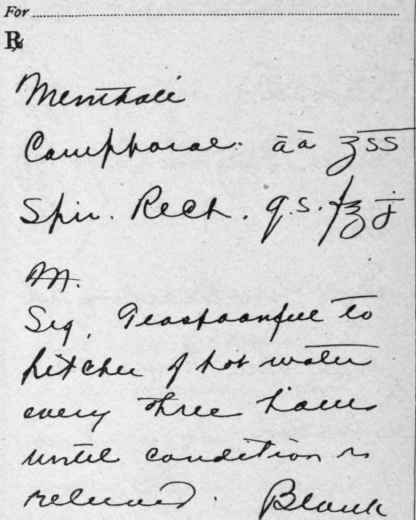 For
℞
Menthali
Camphorae. āā ʒss
Spir. Rect. q.s. f℥j
M.
Sig. Teaspoonful to
pitcher of hot water
every three hours
until condition is
relieved. Blank